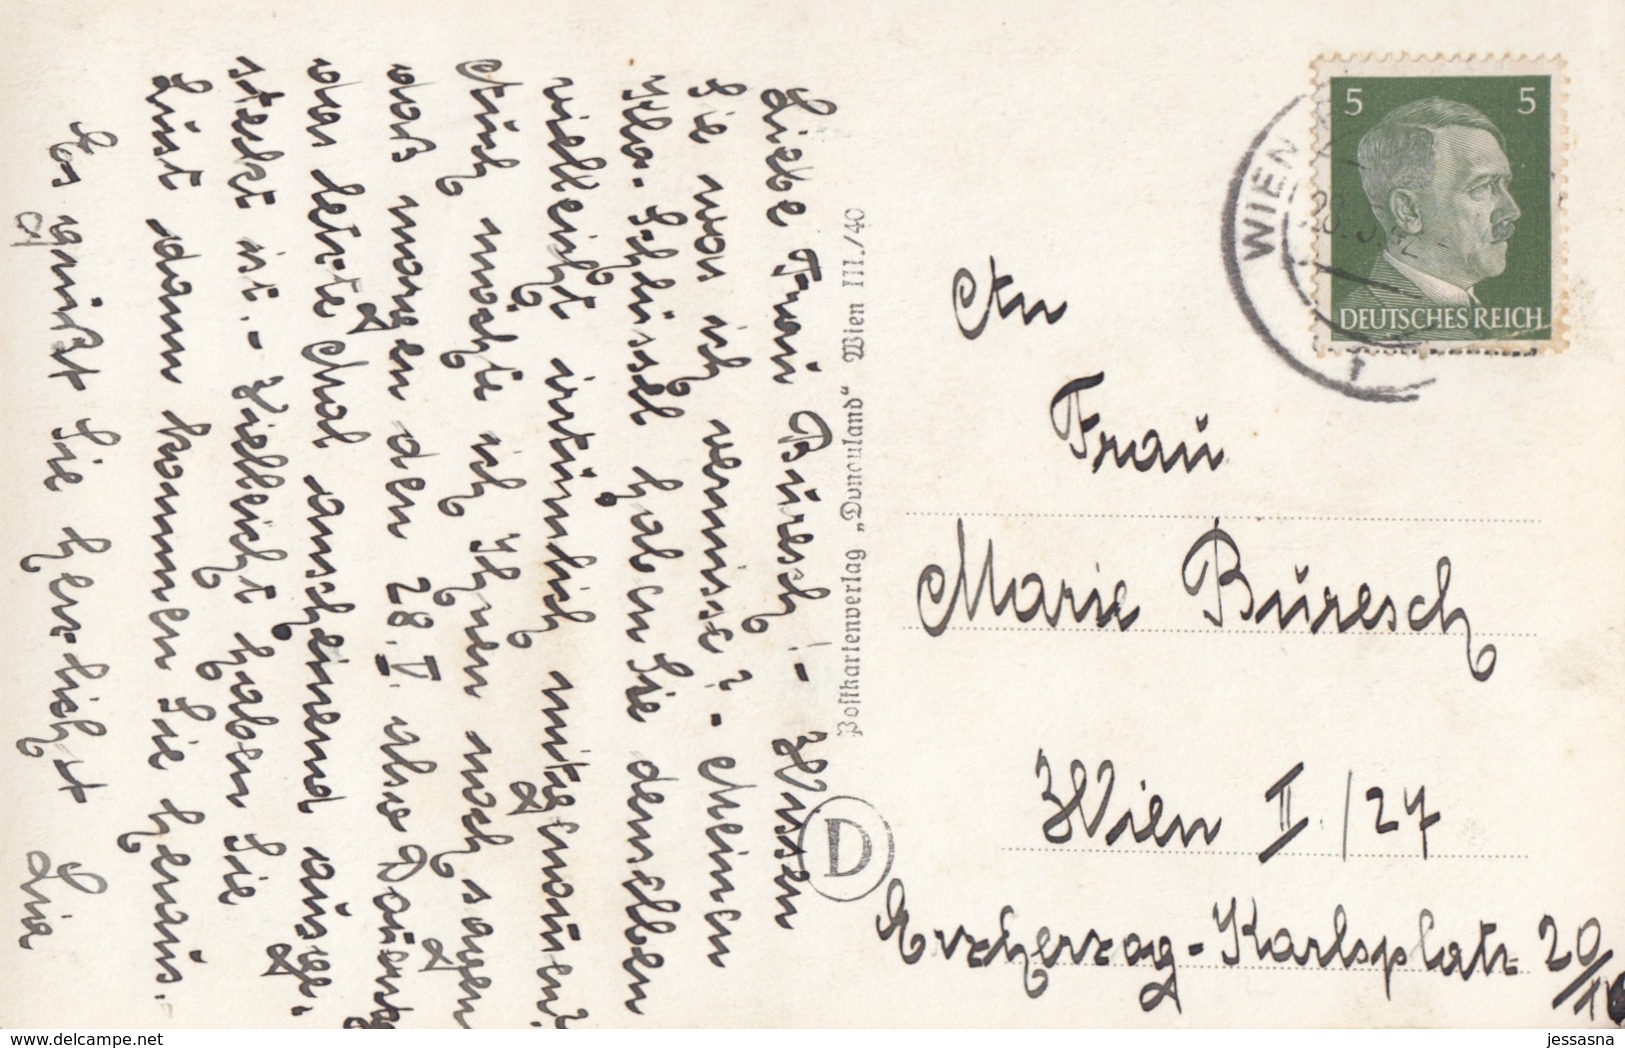 Liebe Frau Büresch! - Wissen
Sie was ich vermisse? - Meinen
Schlüssel haben Sie denselben
vielleicht irrtümlich mitgenommen?
Auch möchte ich Ihnen noch sagen
daß morgen den 28. V. also Donerstg
das letzte Mal anscheinend ausge-
steckt ist. - Vielleicht haben Sie
Lust dann kommen Sie heraus.
Es grüßt Sie herzlichst Lia
Postkartenverlag „Donauland“ Wien III./40
D
WIEN
5 5
DEUTSCHES REICH
An
Frau
Marie Büresch
Wien II./27
Erzherzog-Karlsplatz 20/
delcampe.net
jessasna